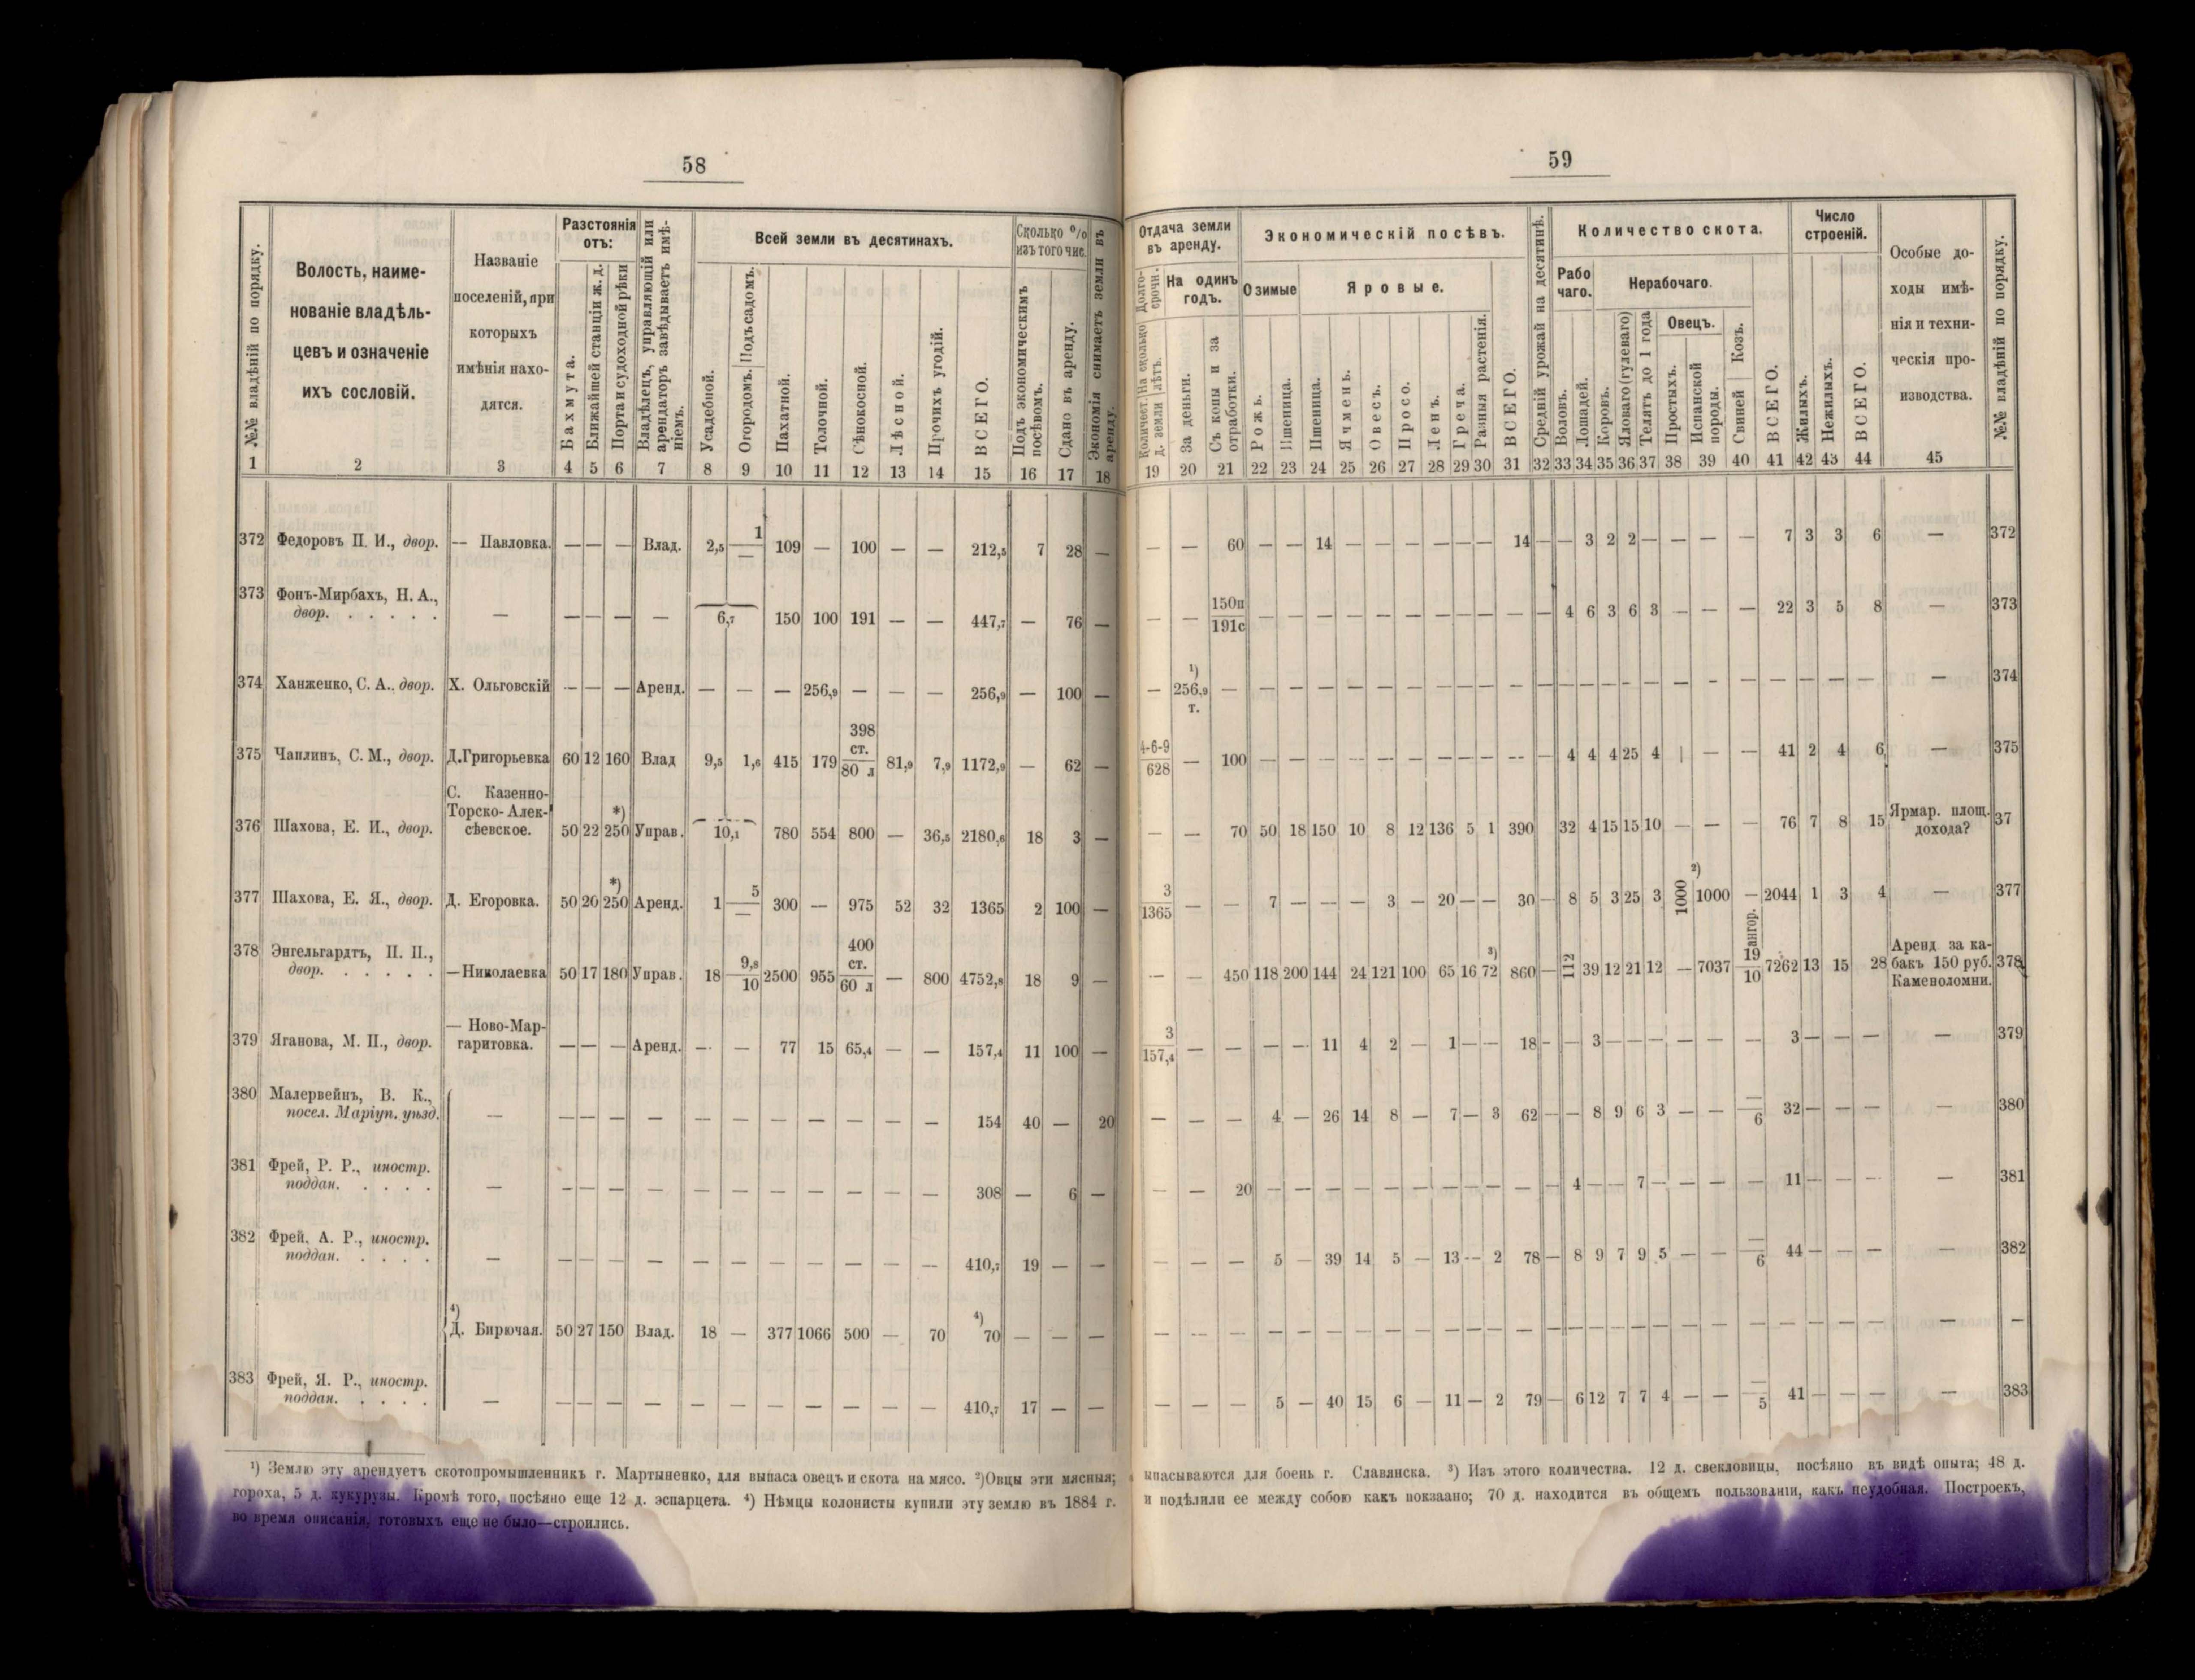 58
№№ владѣній по порядку.
Волость, наиме-
нованіе владѣль-
цевъ и означеніе
ихъ сословій.
Названіе
поселеній, при
которыхъ
имѣнія нахо-
дятся.
Разстоянія
отъ:
Бахмута.
Ближайшей станціи ж. д.
Порта и судоходной рѣки
Владѣлецъ, управляющій или
арендаторъ завѣдываетъ имѣ-
ніемъ.
Всей земли въ десятинахъ.
Усадебной.
Огородомъ. Подъ садомъ.
Пахатной.
Толочной.
Сѣнокосной.
Лѣсной.
Прочихъ угодій.
ВСЕГО.
Сколько %
изъ того чис.
Подъ экономическимъ
посѣвомъ.
Сдано въ аренду.
Экономія снимаетъ земли въ
аренду.
1 2 3 4 5 6 7 8 9 10 11 12 13 14 15 16 17 18
372 Федоровъ П. И., двор. — Павловка. — — — Влад. 2,5 1/— 109 — 100 — — 212,5 7 28 —
373 Фонъ-Мирбахъ, Н. А.,
двор. . . . . . — — — — — 6,7 150 100 191 — — 447,7 — 76 —
374 Ханженко, С. А., двор. Х. Ольговскій — — — Аренд. — — — 256,9 — — — 256,9 — 100 —
398
ст.
375 Чаплинъ, С. М., двор. Д.Григорьевка 60 12 160 Влад 9,5 1,6 415 179 80 л 81,9 7,9 1172,9 — 62 —
С. Казенно-
Торско-Алек-
376 Шахова, Е. И., двор. сѣевское. 50 22 *) 250 Управ. 10,1 780 554 800 — 36,5 2180,6 18 3 —
377 Шахова, Е. Я., двор. Д. Егоровка. 50 20 *) 250 Аренд. 1 5/— 300 — 975 52 32 1365 2 100 —
378 Энгельгардтъ, П. П.,
400
ст.
двор. . . . . . —Николаевка 50 17 180 Управ. 18 9,8/10 2500 955 60 л — 800 4752,8 18 9 —
— Ново-Мар-
379 Яганова, М. П., двор. гаритовка. — — — Аренд. — — 77 15 65,4 — — 157,4 11 100 —
380 Малервейнъ, В. К.,
посел. Маріуп. уѣзд. — — — — — — — — — — — — 154 40 — 20
381 Фрей, Р. Р., иностр.
поддан. . . . . — — — — — — — — — — — — 308 — 6 —
382 Фрей, А. Р., иностр.
поддан. . . . . — — — — — — — — — — — — 410,7 19 — —
4) Д. Бирючая. 50 27 150 Влад. 18 — 377 1066 500 — 70 4) 70 — — —
383 Фрей, Я. Р., иностр.
поддан. . . . . — — — — — — — — — — — — 410,7 17 — —
¹) Землю эту арендуетъ скотопромышленникъ г. Мартыненко, для выпаса овецъ и скота на мясо. ²)Овцы эти мясныя;
гороха, 5 д. кукурузы. Кромѣ того, посѣяно еще 12 д. эспарцета. ⁴) Нѣмцы колонисты купили эту землю въ 1884 г.
во время описанія, готовыхъ еще не было—строились.
59
Отдача земли
въ аренду.
Долго-
срочн.
На одинъ
годъ.
Количест. На сколько
д. земли лѣтъ.
За деньги.
Съ копы и за
отработки.
Экономическій посѣвъ.
Озимые
Яровые.
Рожь.
Пшеница.
Пшеница.
Ячмень.
Овесъ.
Просо.
Ленъ.
Греча.
Разныя растенія.
ВСЕГО.
Средній урожай на десятинѣ.
Количество скота.
Рабо
чаго.
Нерабочаго.
Воловъ.
Лошадей.
Коровъ.
Яловаго (гулеваго)
Телятъ до 1 года
Овецъ.
Простыхъ.
Испанской
породы.
Свиней Козъ.
ВСЕГО.
Число
строеній.
Жилыхъ.
Нежилыхъ.
ВСЕГО.
Особые до-
ходы имѣ-
нія и техни-
ческія про-
изводства.
№№ владѣній по порядку.
19 20 21 22 23 24 25 26 27 28 29 30 31 32 33 34 35 36 37 38 39 40 41 42 43 44 45
— — 60 — — 14 — — — — — — 14 — — 3 2 2 — — — — 7 3 3 6 — 372
— — 150п/191с — — — — — — — — — — — 4 6 3 6 3 — — — 22 3 5 8 — 373
¹)
— 256,9 — — — — — — — — — — — — — — — — — — — — — — — — — 374
т.
4-6-9/628 — 100 — — — — — — — — — — — 4 4 4 25 4 | — — 41 2 4 6 — 375
— — 70 50 18 150 10 8 12 136 5 1 390 32 4 15 15 10 — — — 76 7 8 15 Ярмар. площ.
дохода? 37
3/1365 — — 7 — — — 3 — 20 — — 30 — 8 5 3 25 3 1000 ²) 1000 — 2044 1 3 4 — 377
— — 450 118 200 144 24 121 100 65 16 ³) 72 860 — 112 39 12 21 12 — 7037 ангор. 19/10 7262 13 15 28 Аренд за ка-
бакъ 150 руб.
Каменоломни. 378
3/157,4 — — — — 11 4 2 — 1 — — 18 — — 3 — — — — — — 3 — — — — 379
— — — 4 — 26 14 8 — 7 — 3 62 — — 8 9 6 3 — — —/6 32 — — — — 380
— — 20 — — — — — — — — — — — 4 — — 7 — — — — 11 — — — — 381
— — — 5 — 39 14 5 — 13 — 2 78 — 8 9 7 9 5 — — —/6 44 — — — — 382
— — — — — — — — — — — — — — — — — — — — — — — — — — — —
— — — 5 — 40 15 6 — 11 — 2 79 — 6 12 7 7 4 — — —/5 41 — — — — 383
ыпасываются для боень г. Славянска. ³) Изъ этого количества. 12 д. свекловицы, посѣяно въ видѣ опыта; 48 д.
и подѣлили ее между собою какъ покзаано; 70 д. находится въ общемъ пользованіи, какъ неудобная. Построекъ,